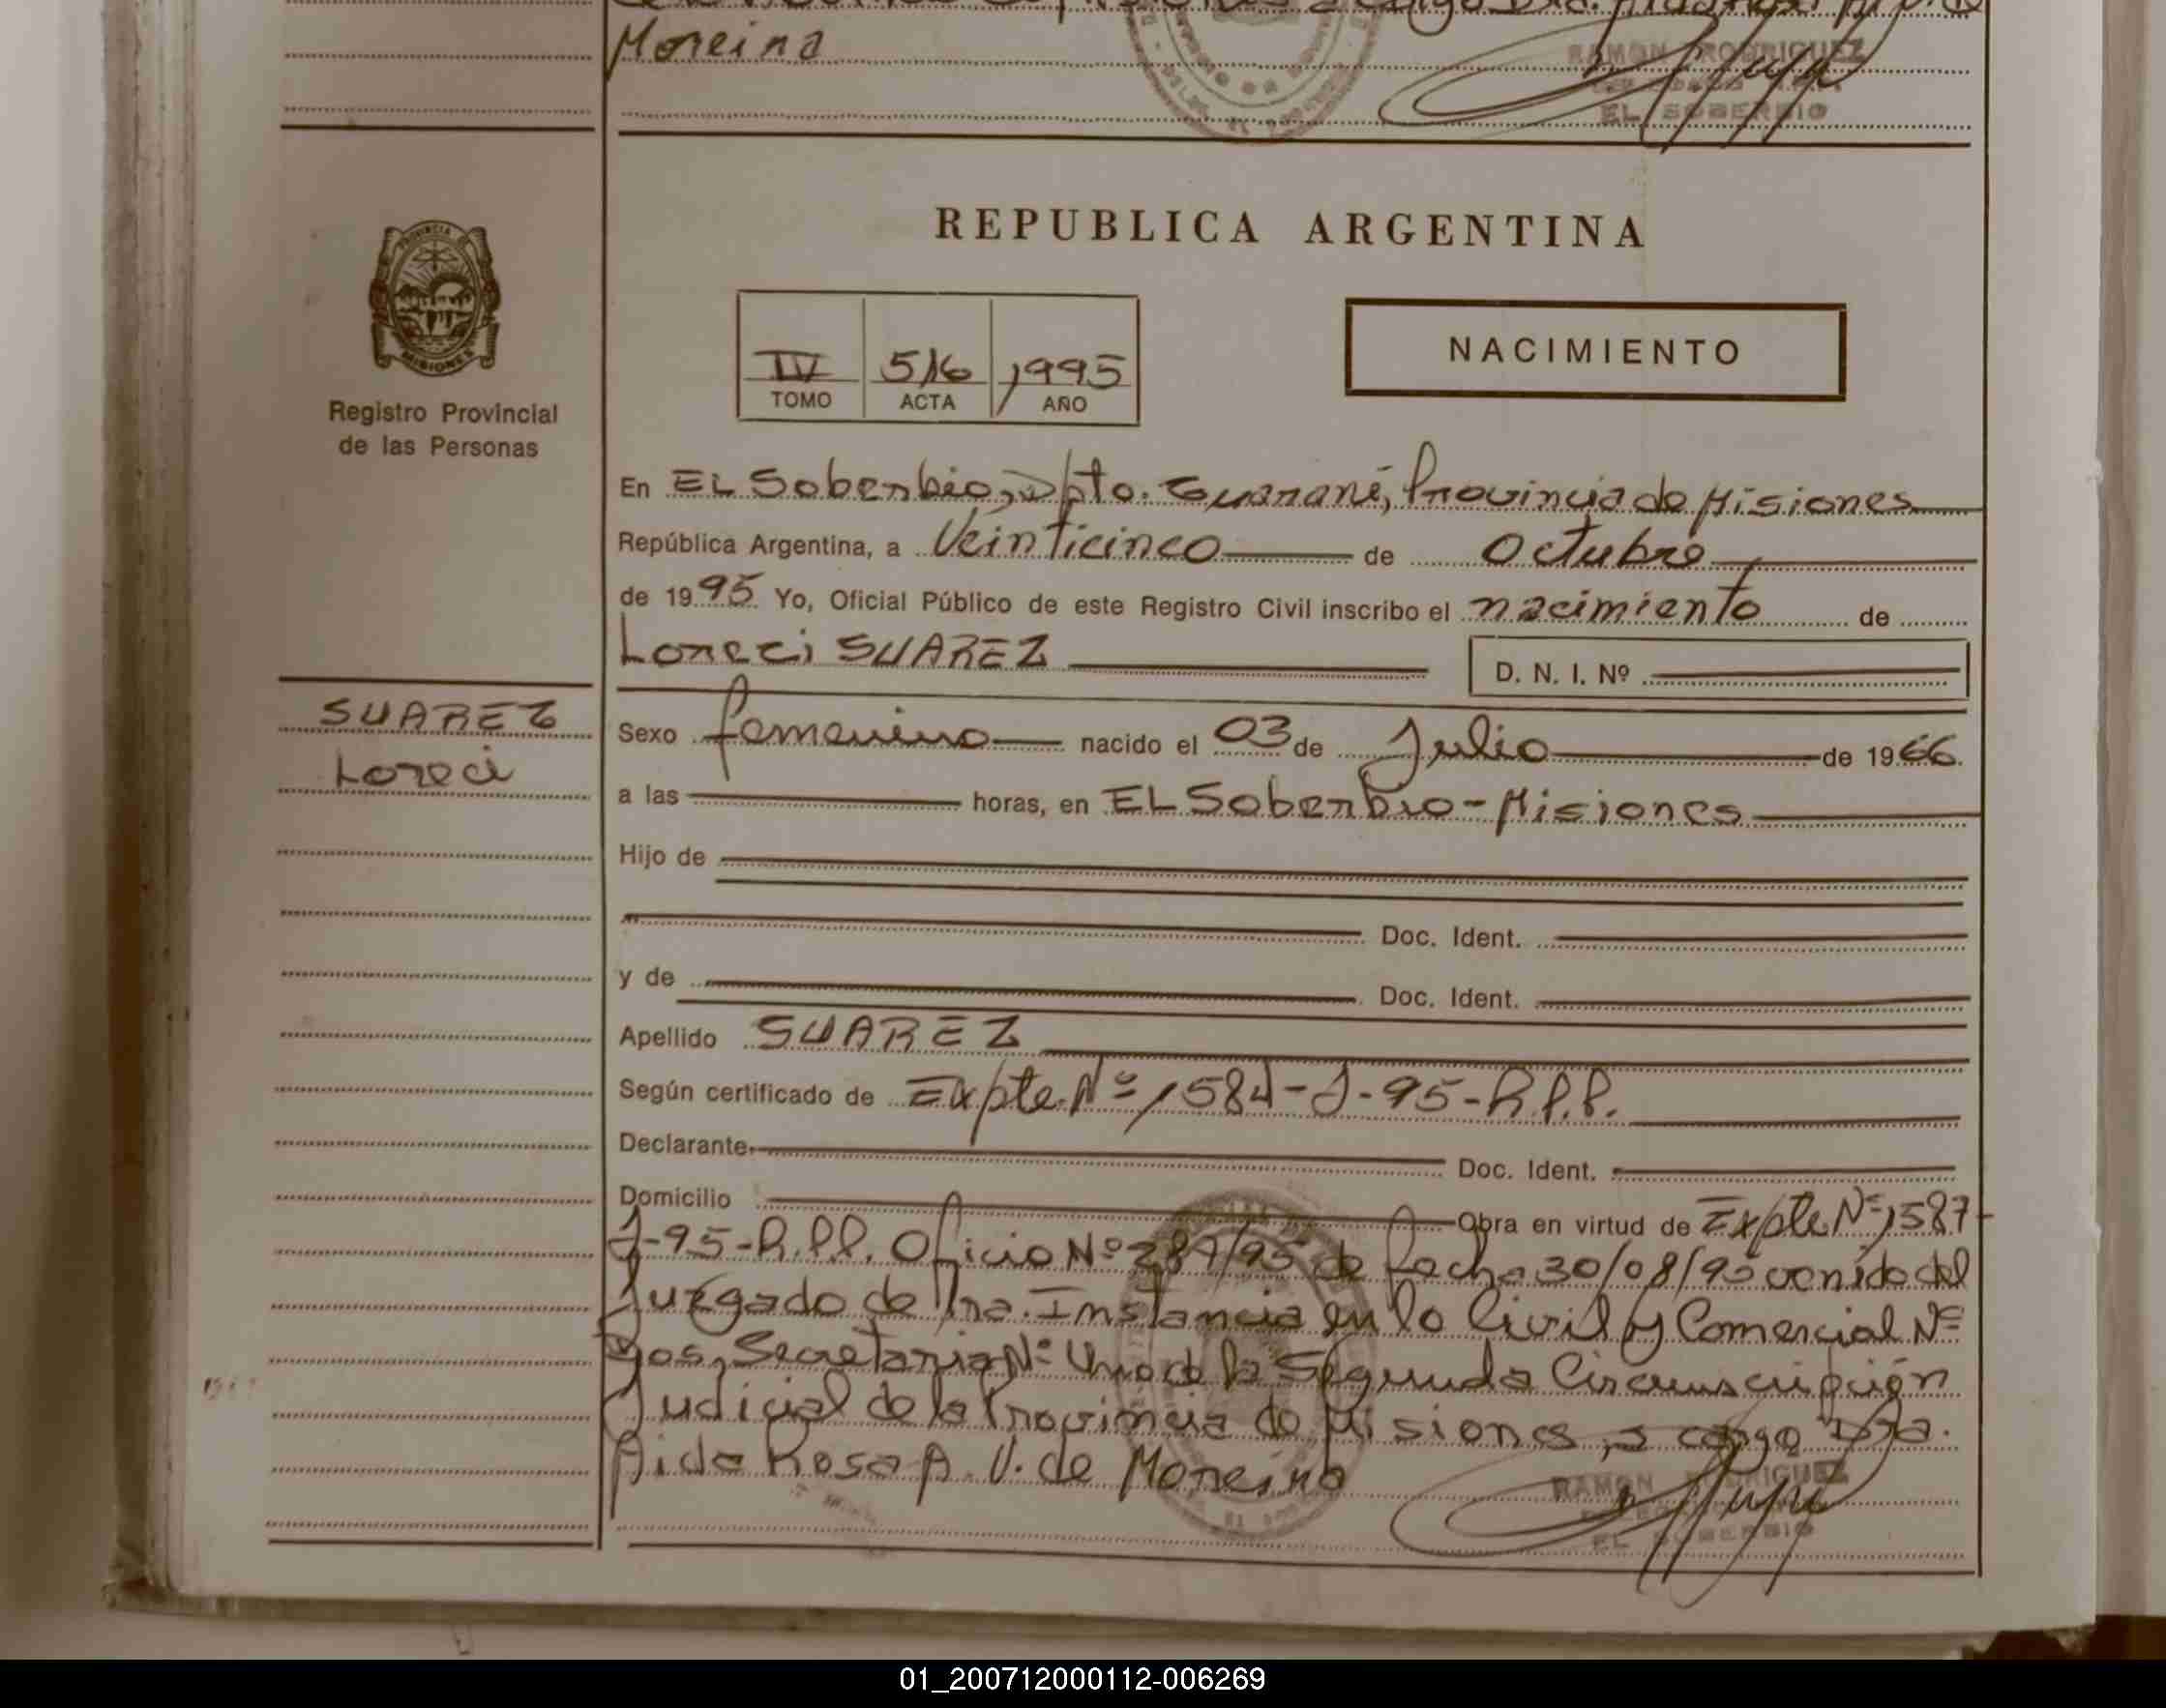 Moreira
RAMON RODRIGUEZ
EL SOBERBIO
REPUBLICA ARGENTINA
PROVINCIA DE
MISIONES
Registro Provincial
de las Personas
IV 516 1995
TOMO ACTA AÑO
NACIMIENTO
En EL Soberbio, Dpto. Guaraní, Provincia de Misiones
República Argentina, a Veinticinco de Octubre
de 1995 Yo, Oficial Público de este Registro Civil inscribo el nacimiento de
Loreci SUAREZ D. N. I. Nº
SUAREZ
Loreci
Sexo femenino nacido el 03 de Julio de 1966.
a las horas, en EL Soberbio - Misiones
Hijo de
Doc. Ident.
y de Doc. Ident.
Apellido SUAREZ
Según certificado de Expte. Nº 1584-J-95-R.P.P.
Declarante Doc. Ident.
Domicilio Obra en virtud de Expte Nº 1587-
J-95-R.P.P. Oficio Nº 287/95 de fecha 30/08/95 venido del
Juzgado de 1ra. Instancia en lo Civil y Comercial Nº
Dos, Secretaria Nº Uno de la Segunda Circunscripción
Judicial de la Provincia de Misiones, a cargo Dra.
Aida Rosa A. V. de Moreira
RAMON RODRIGUEZ
EL SOBERBIO
01_200712000112-006269